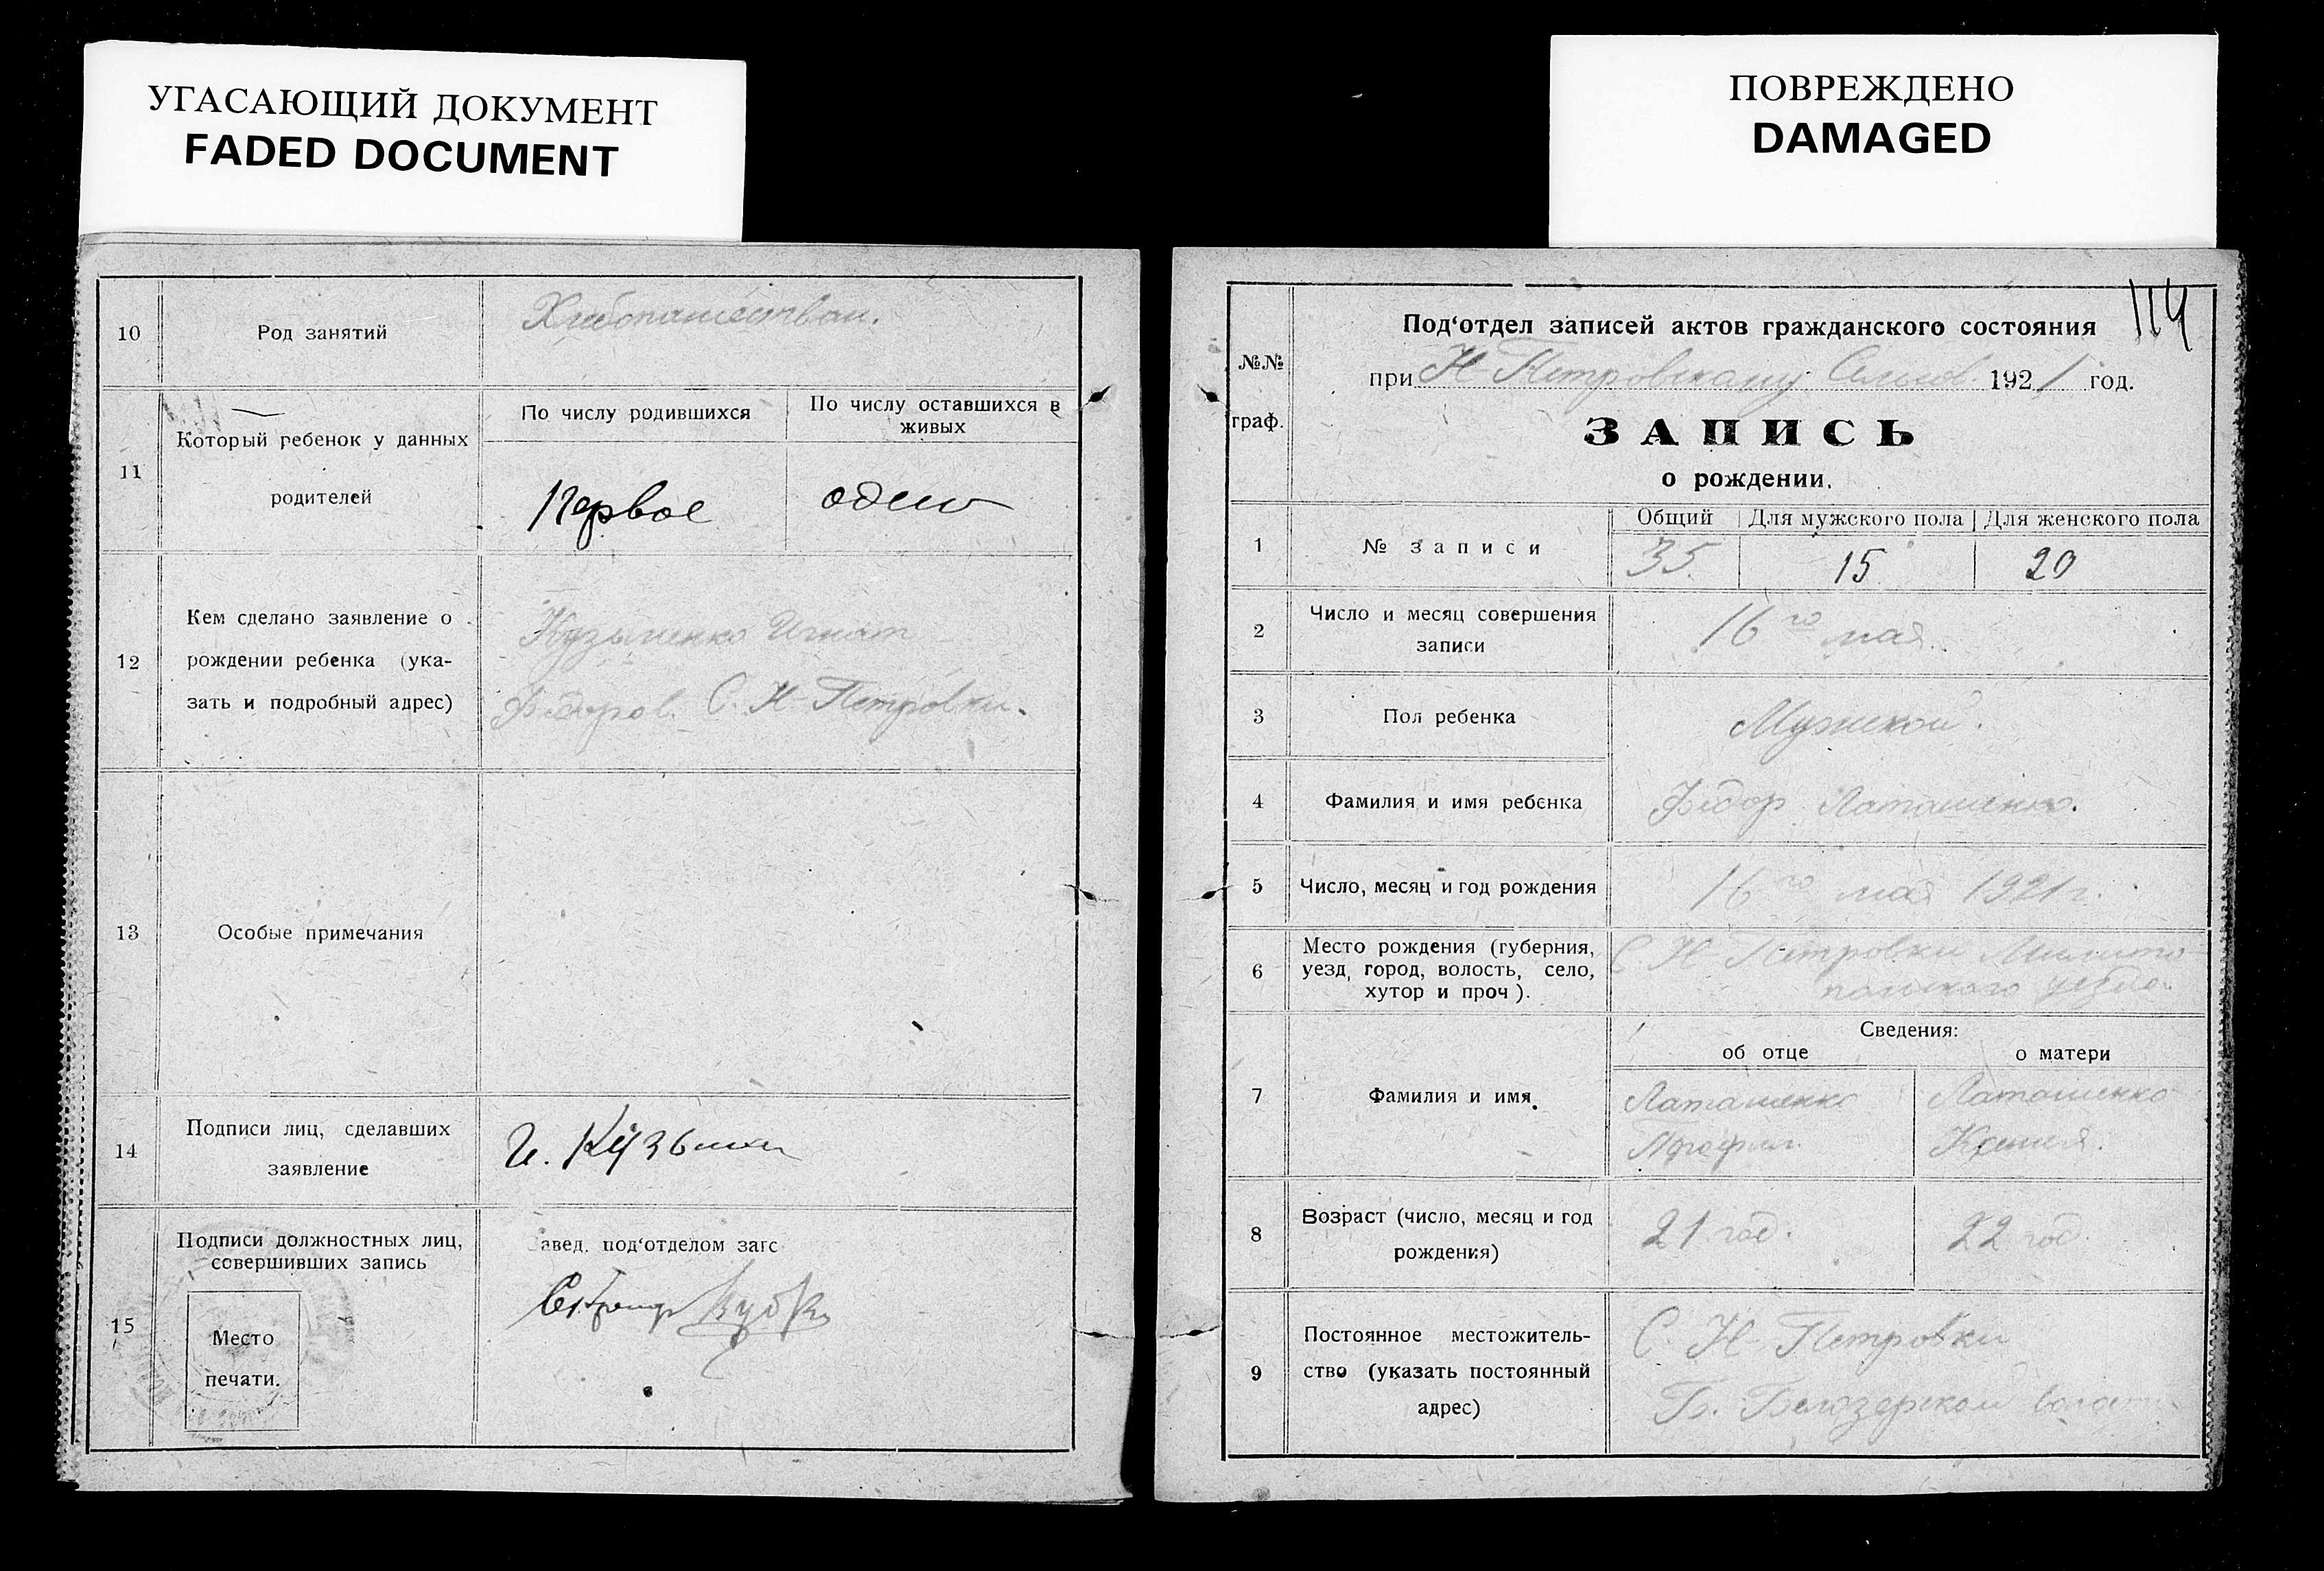 УГАСАЮЩИЙ ДОКУМЕНТ
FADED DOCUMENT
ПОВРЕЖДЕНО
DAMAGED
10
Род занятий
Хлебопашеством.
11
Который ребенок у данных
родителей
По числу родившихся
По числу оставшихся в
живых
Первое
один
12
Кем сделано заявление о
рождении ребенка (ука-
зать и подробный адрес)
Кузьменко Игнат
Федоров. С. Н-Петровки.
13
Особые примечания
14
Подписи лиц, сделавших
заявление
И. Кузьмен
15
Подписи должностных лиц,
совершивших запись
Место
печати.
авед. под‘отделом загс
114
№№
граф.
Под‘отдел записей актов гражданского состояния
при Н-Петровскому 1921 год.
ЗАПИСЬ
о рождении.
1
№ записи
Общий
Для мужского пола
Для женского пола
35.
15
20
2
Число и месяц совершения
записи
16го мая.
3
Пол ребенка
Мужской.
4
Фамилия и имя ребенка
Федор Латашенко.
5
Число, месяц и год рождения
16го мая 1921 г.
6
Место рождения (губерния,
уезд, город, волость, село,
хутор и проч).
С. Н-Петровки Мелито-
польского уезда
7
Фамилия и имя
Сведения:
об отце
о матери
Латашенко
Трофим.
Латашенко
Ксения.
8
Возраст (число, месяц и год
рождения)
21 год.
22 год.
9
Постоянное местожитель-
ство (указать постоянный
адрес)
С. Н-Петровки
Б. Белозерской волост